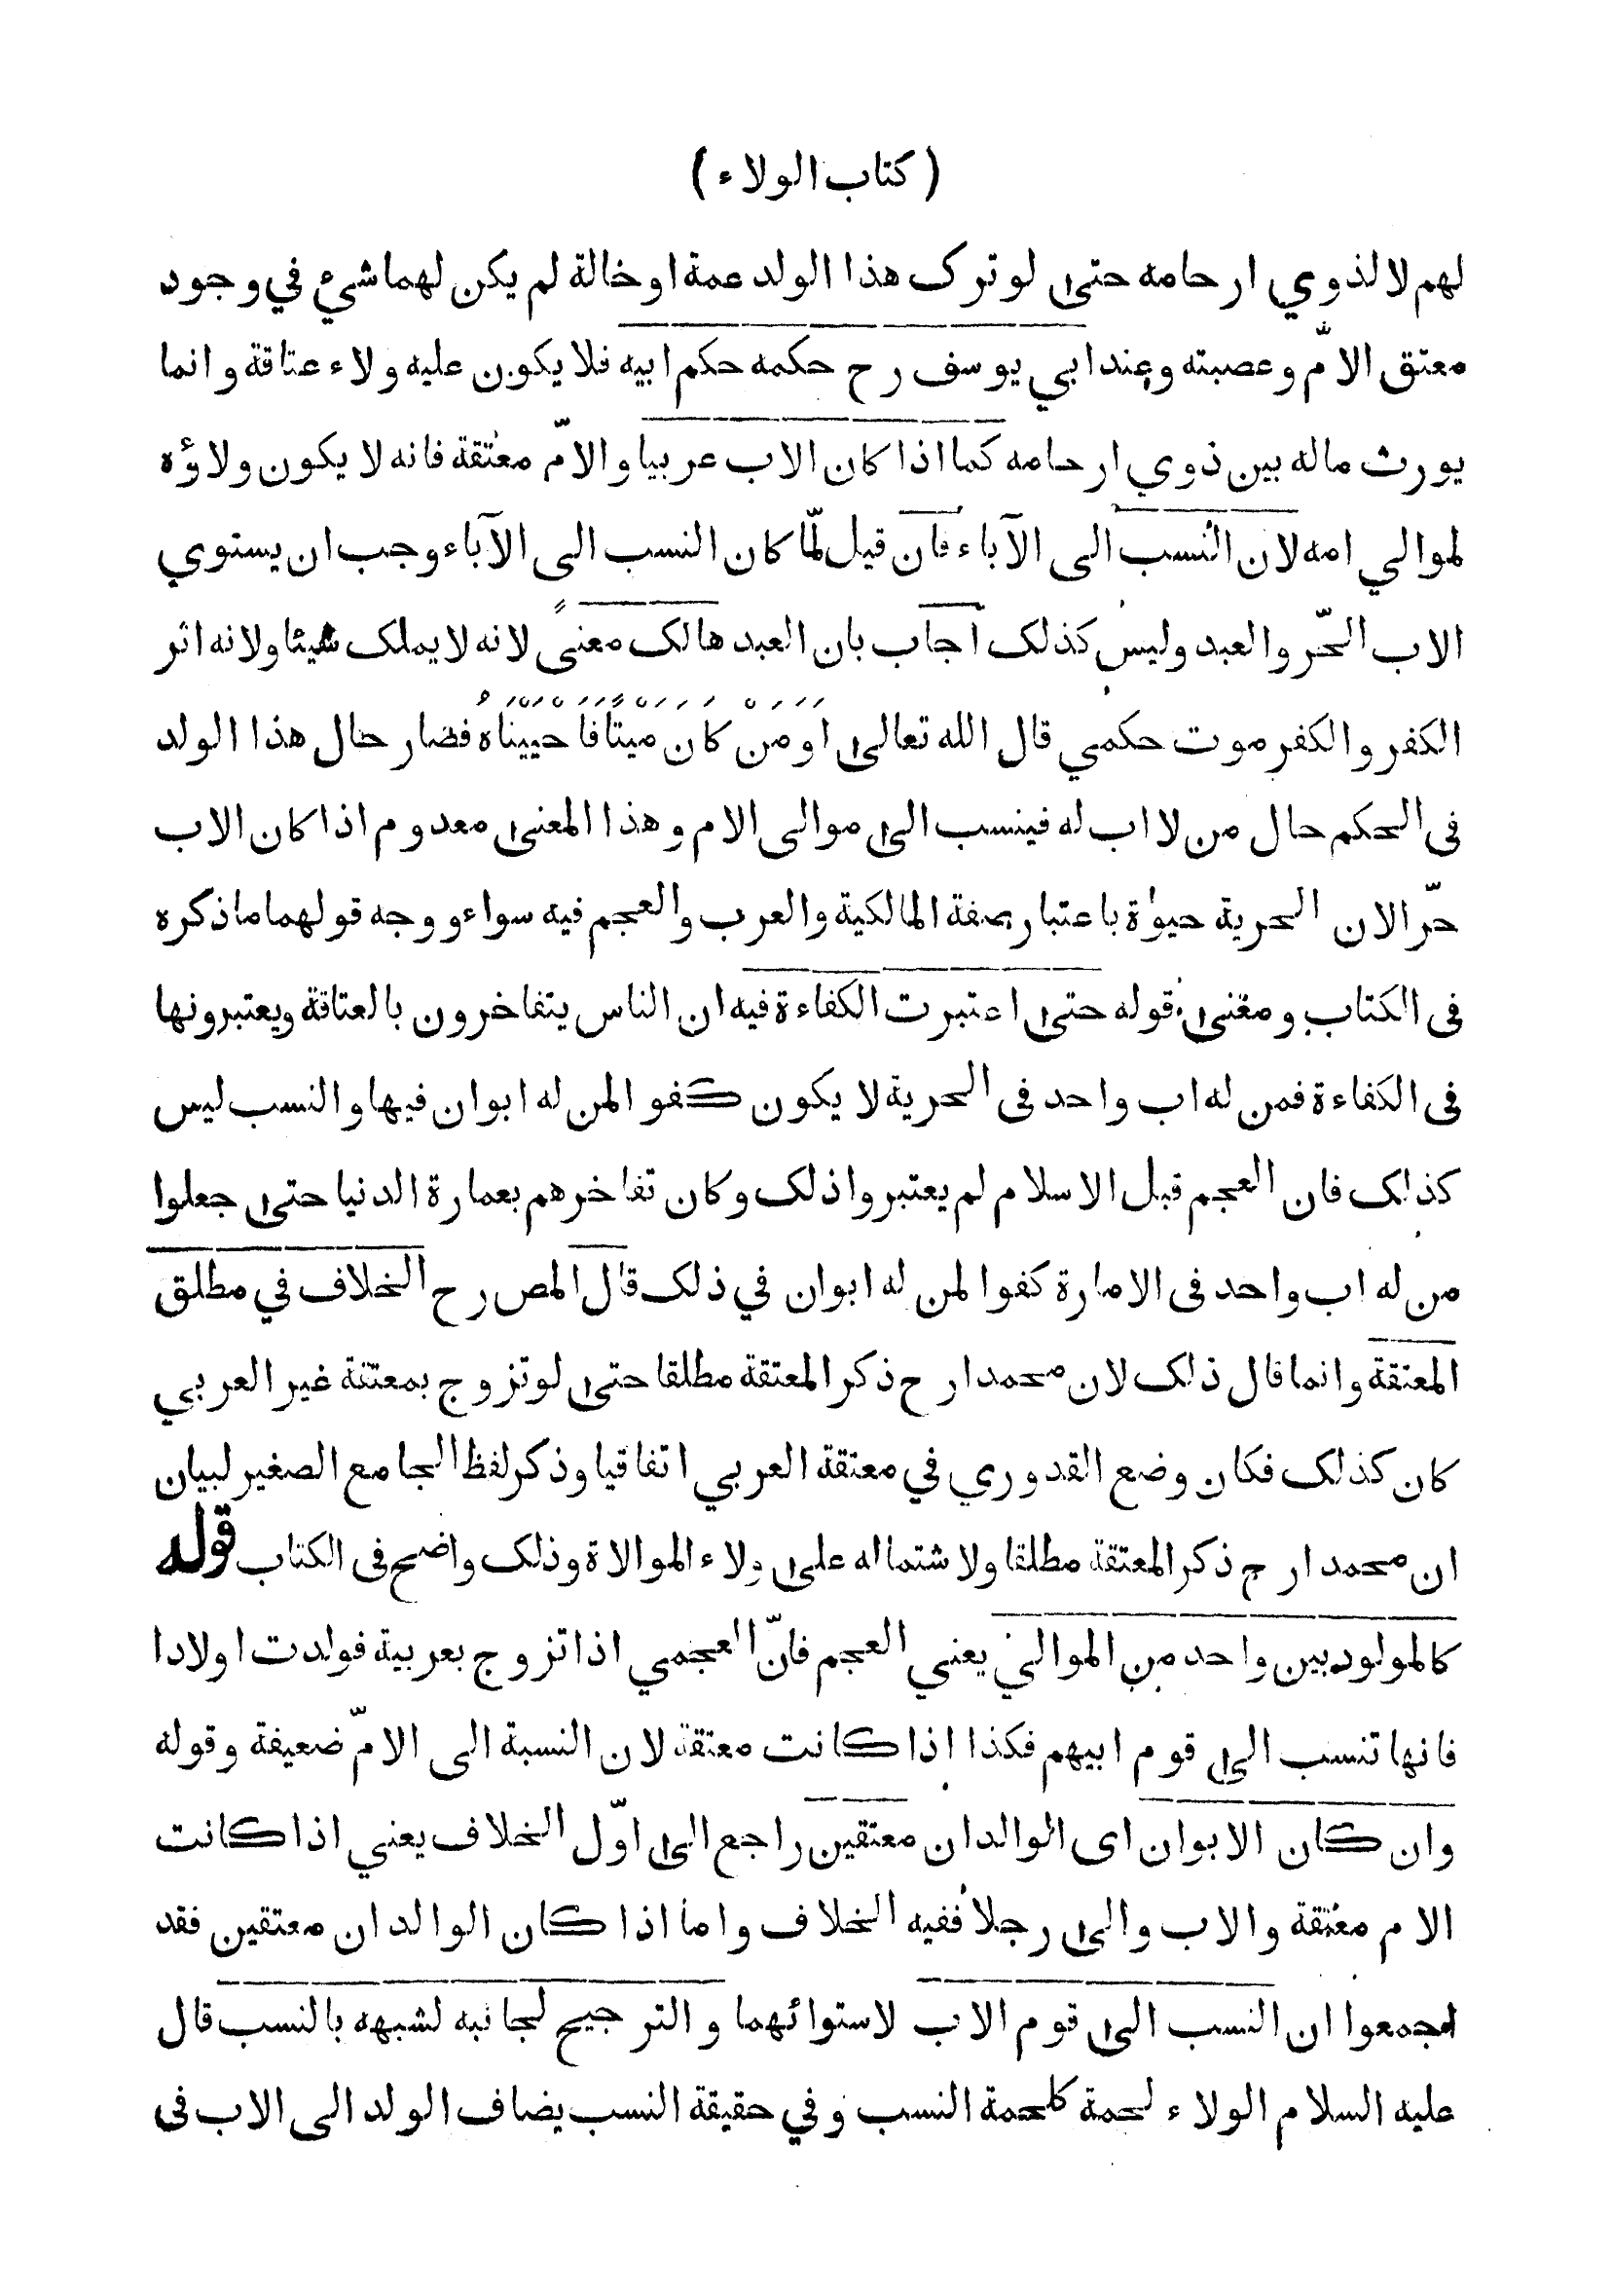 ( كتاب الولاء )
لهم لا لذوي ارحامه حتى لو ترك هذا الولد عمة او خالة لم يكن لهما شيء في وجود
معتق الامّ وعصبته وعند ابي يوسف رح حكمه حكم ابيه فلا يكون عليه ولاء عتاقة وانما
يورث ماله بين ذوي ارحامه كما اذا كان الاب عربيا والامّ معتقة فانه لا يكون ولاؤه
لموالي امه لان النسب الى الآباء فان قيل لمّا كان النسب الى الآباء وجب ان يستوي
الاب الحّر والعبد وليس كذلك اجاب بان العبد هالك معنىً لانه لا يملك شيئا ولانه اثر
الكفر والكفر موت حكمي قال الله تعالى اَوَمَنْ كَانَ مَيْتًا فَاَحْيَيْنَاهُ فصار حال هذا الولد
فى الحكم حال من لا اب له فينسب الى موالى الام وهذا المعنى معدوم اذا كان الاب
حّرا لان الحرية حيوٰة باعتبار صفة المالكية والعرب والعجم فيه سواء ووجه قولهما ما ذكره
فى الكتاب ومعنى قوله حتى اعتبرت الكفاءة فيه ان الناس يتفاخرون بالعتاقة ويعتبرونها
فى الكفاءة فمن له اب واحد فى الحرية لا يكون كفوا لمن له ابوان فيها والنسب ليس
كذلك فان العجم قبل الاسلام لم يعتبروا ذلك وكان تفاخرهم بعمارة الدنيا حتى جعلوا
من له اب واحد فى الامارة كفوا لمن له ابوان في ذلك قال المص رح الخلاف في مطلق
المعتقة وانما قال ذلك لان محمدا رح ذكر المعتقة مطلقا حتى لو تزوج بمعتقة غير العربي
كان كذلك فكان وضع القدوري في معتقة العربي اتفاقيا وذكر لفظ الجامع الصغير لبيان
ان محمدا رح ذكر المعتقة مطلقا ولاشتماله على ولاء الموالاة وذلك واضح فى الكتاب قوله
كالمولود بين واحد من الموالي يعني العجم فانّ العجمي اذا تزوج بعربية فولدت اولادا
فانها تنسب الى قوم ابيهم فكذا اذا كانت معتقة لان النسبة الى الامّ ضعيفة وقوله
وان كان الابوان اى الوالدان معتقين راجع الى اوّل الخلاف يعني اذا كانت
الام معتقة والاب والى رجلا ففيه الخلاف واما اذا كان الوالدان معتقين فقد
اجمعوا ان النسب الى قوم الاب لاستوائهما والترجيح لجانبه لشبهه بالنسب قال
عليه السلام الولاء لحمة كلحمة النسب وفي حقيقة النسب يضاف الولد الى الاب فى